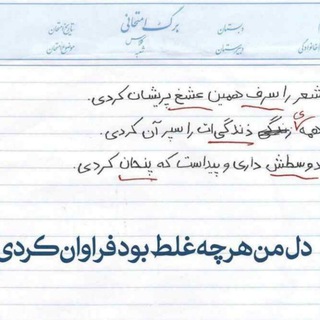 دبستان برگ امتحانی تاریخ امتحان
خانوادگی دبیرستان کلاس شعبه موضوع امتحان
شعر را سرف همین عشغ پریشان کردی.
همه ی زندگی ذندگی ات را سپر آن کردی.
دوسطش داری و پیداست که پنحان کردی.
دل من هرچه غلط بود فراوان کردی